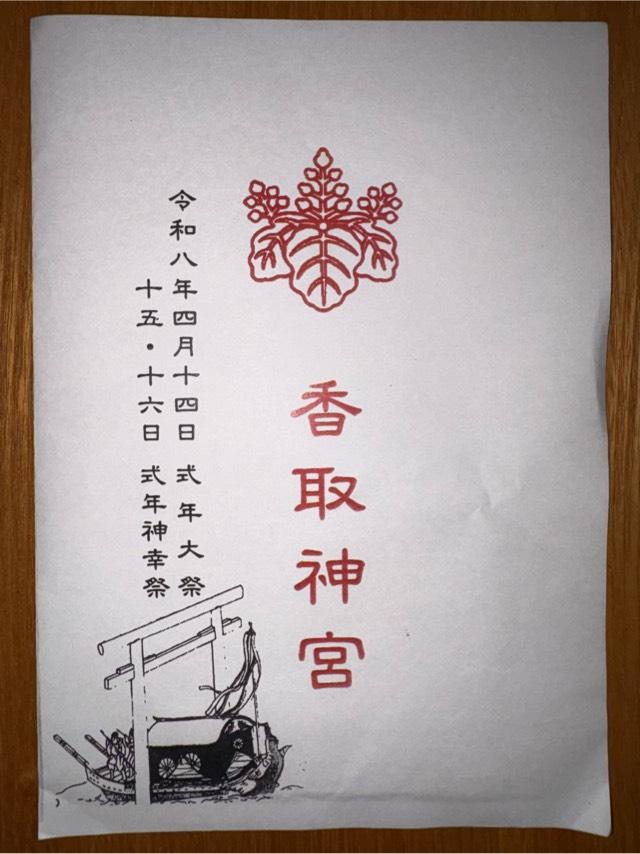 香取神宮
令和八年四月十四日 式年大祭
十五・十六日 式年神幸祭